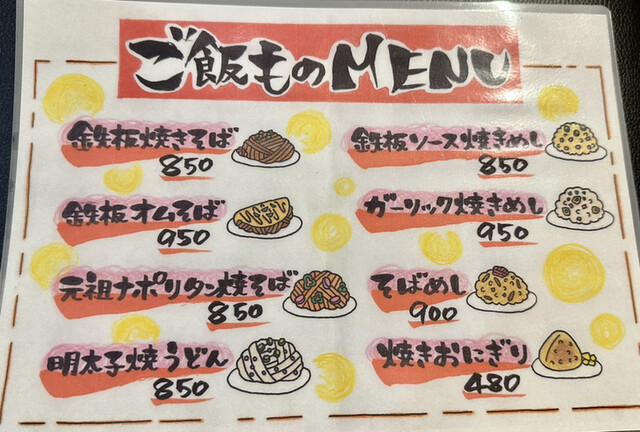 ご飯ものMENU
鉄板焼きそば
850
鉄板オムそば
950
元祖ナポリタン焼そば
850
明太子焼うどん
850
鉄板ソース焼きめし
850
ガーリック焼きめし
950
そばめし
900
焼きおにぎり
480